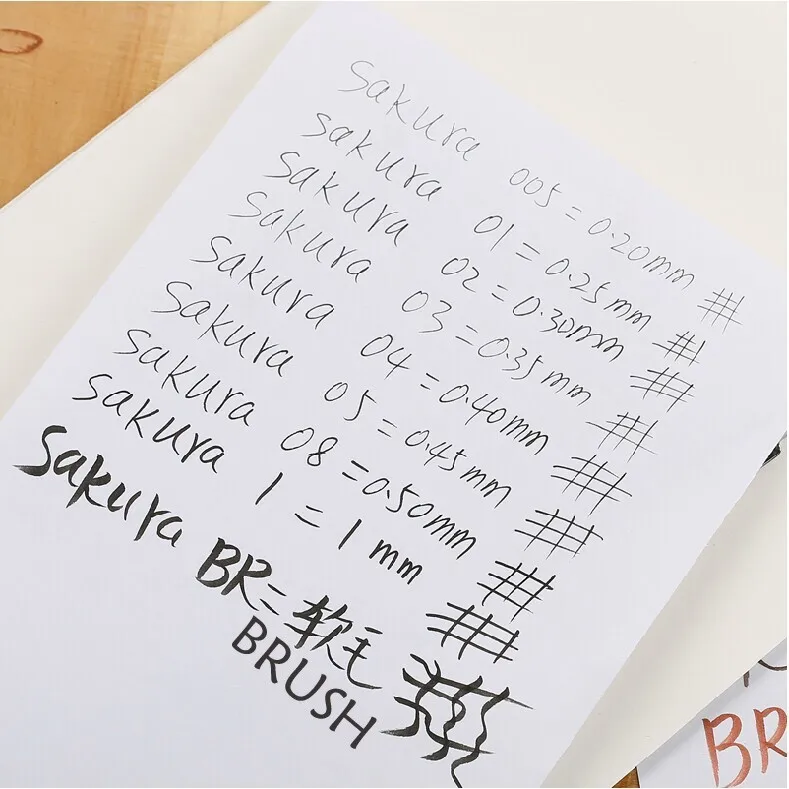 Sakura 005 = 0.20mm
Sakura 01 = 0.25mm
Sakura 02 = 0.30mm
Sakura 03 = 0.35mm
Sakura 04 = 0.40mm
Sakura 05 = 0.45mm
Sakura 08 = 0.50mm
Sakura 1 = 1mm
Sakura BR = 软毛
BRUSH
BR